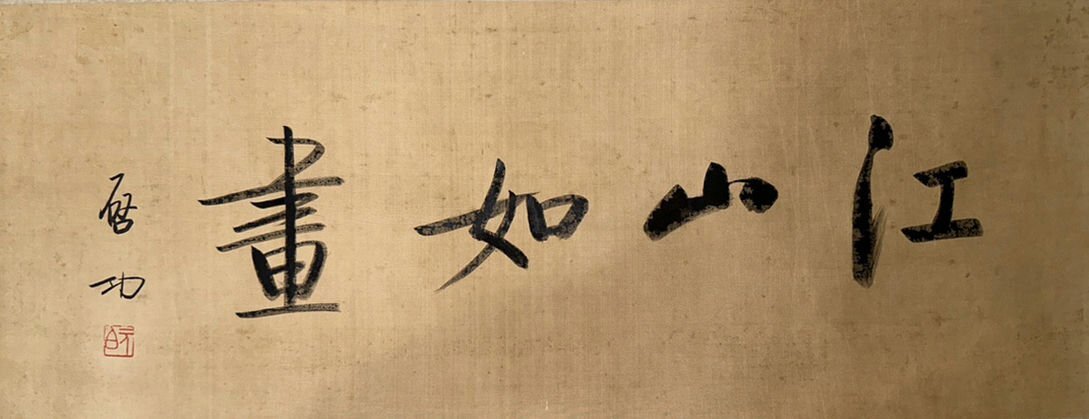 江山如畫
啓功